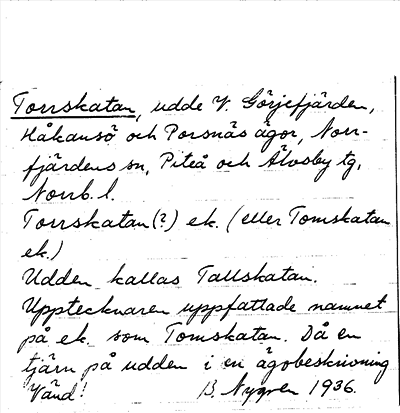 Torrskatan, udde V. Görjefjärden,
Håkansö och Porsnäs ägor, Norr-
fjärdens sn, Piteå och Älvsby tg,
Norrb. l.
Torrskatan(?) ek. (eller Tomskatan
ek.)
Udden kallas Tallskatan.
Upptecknaren uppfattade namnet
på ek. som Tomskatan. Då en
tjärn på udden i en ägobeskrivning
Vänd! B. Nygren 1936.